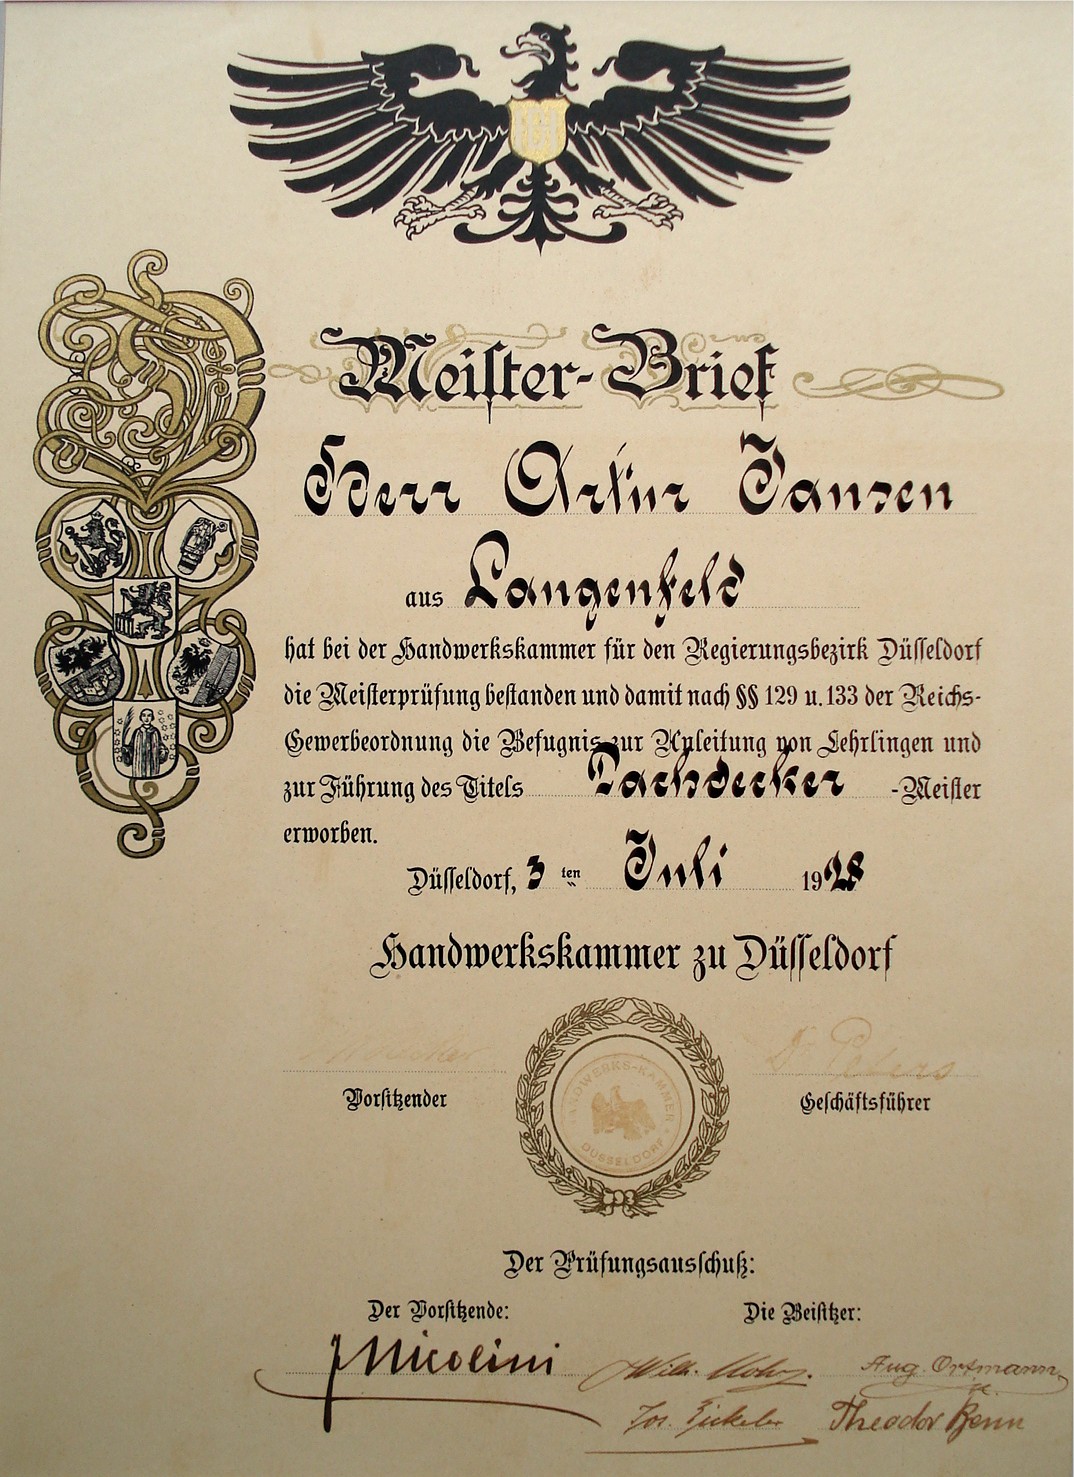 Meister-Brief
Herr Artur Jansen
aus Langenfeld
hat bei der Handwerkskammer für den Regierungsbezirk Düsseldorf
die Meisterprüfung bestanden und damit nach §§ 129 u. 133 der Reichs-
Gewerbeordnung die Befugnis zur Anleitung von Lehrlingen und
zur Führung des Titels Dachdecker -Meister
erworben.
Düsseldorf, 3 ten Juli 1928
Handwerkskammer zu Düsseldorf
Dr Peters
Vorsitzender Geschäftsführer
HANDWERKS-KAMMER
DÜSSELDORF
Der Prüfungsausschuß:
Der Vorsitzende: Die Beisitzer:
J Nicolini Wilh. Aug. Ortmann
Jos. Theodor